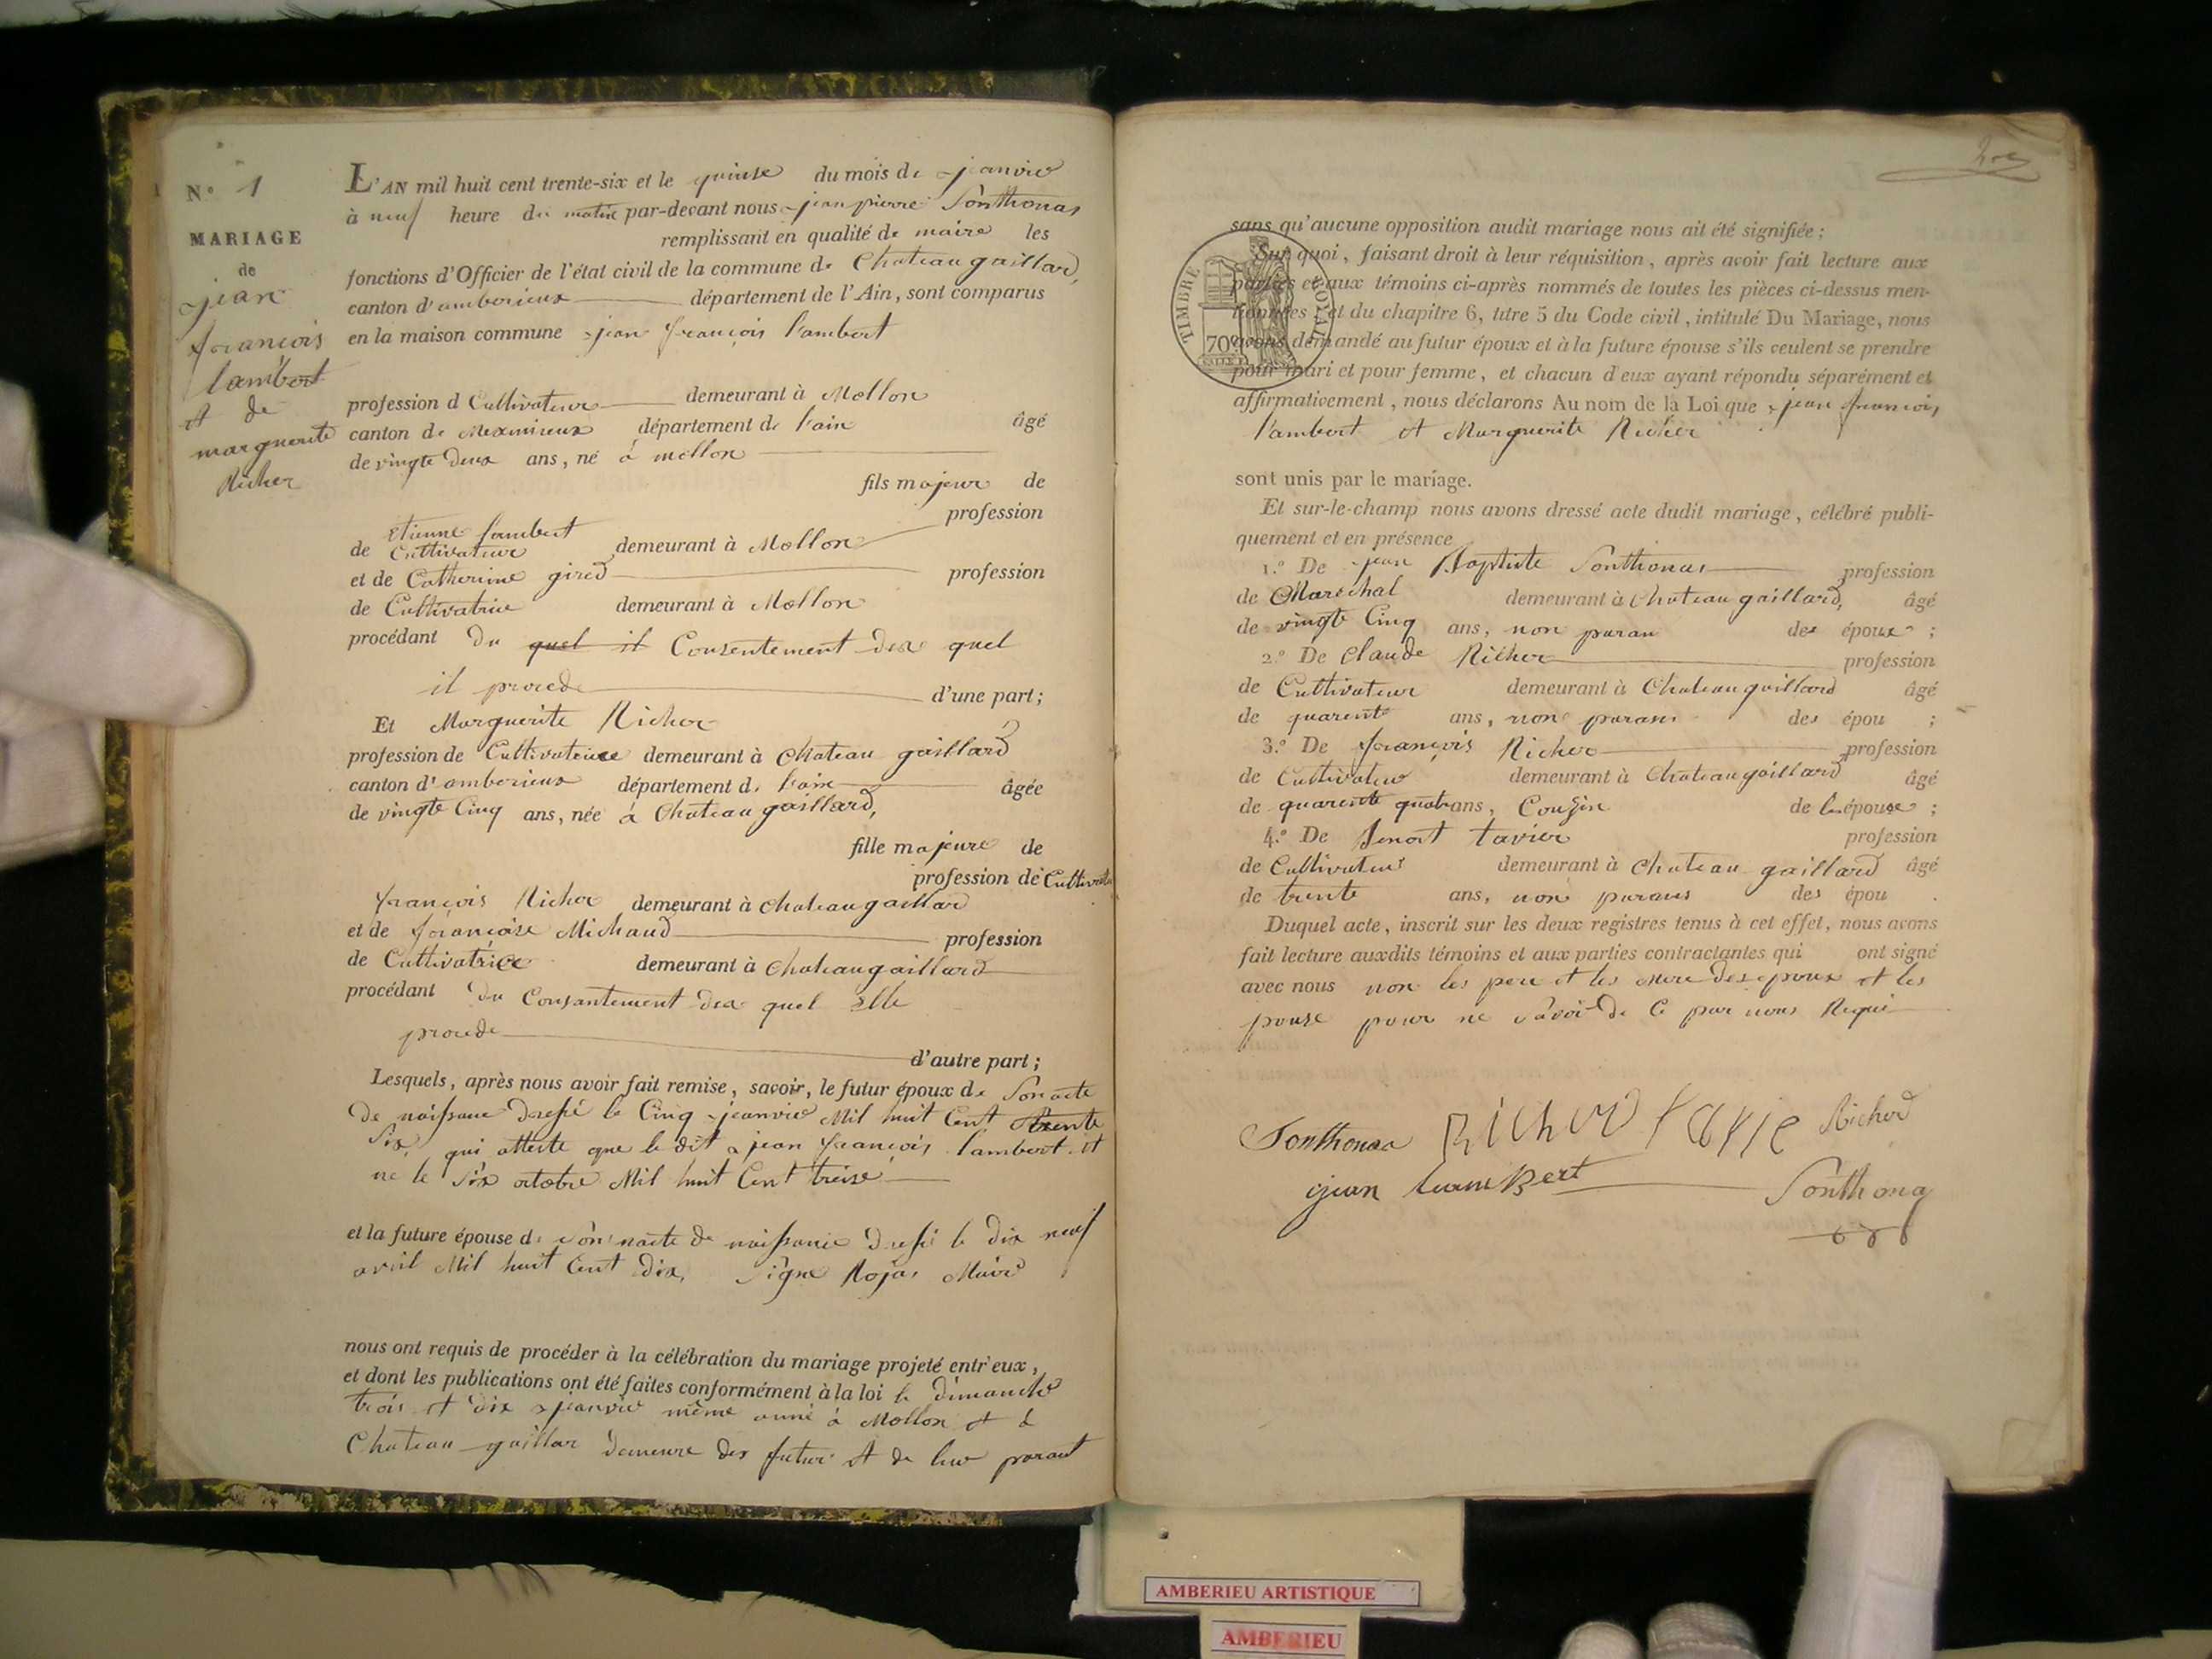 N° 1
MARIAGE
de
jean
francois
lambert
et de
marguerite
Richer
L'AN mil huit cent trente-six et le quinse du mois de janvie
à neuf heure du matin par-devant nous jean pierre Sonthonas
remplissant en qualité de maire les
fonctions d'Officier de l'état civil de la commune de Chateau gaillard,
canton d'amberieux département de l'Ain, sont comparus
en la maison commune jean françois lambert
profession d Cultivateur demeurant à Mollon
canton de Meximieux département de l'ain âgé
de vingte deux ans, né à mollon
fils majeur de
profession
Etienne lambert
de Cultivateur demeurant à Mollon
et de Catherine gired profession
de Cultivatrice demeurant à Mollon
procédant du quel il Consentement des quel
il procede d'une part;
Et Marguerite Richer
profession de Cultivatrice demeurant à Chateau gaillard
canton d'amberieux département d. l'ain âgée
de vingte Cinq ans, née à Chateau gaillard,
fille majeure de
profession de Cultivate
françois Richer demeurant à chateau gaillard
et de françoise Michaud profession
de Cultivatrice demeurant à chateau gaillard
procédant du Consantement des quel elle
procede d'autre part;
Lesquels, après nous avoir fait remise, savoir, le futur époux de Son acte
de naissance dressé le Cinq janvie Mil huit Cent trente
Six, qui atteste que le dit jean françois lambert et
né le Six octobre Mil huit Cent treise
et la future épouse d. son nacte de naissance dressé le dix neuf
avril Mil huit Cent dix, signe Rojas Maire
nous ont requis de procéder à la célébration du mariage projeté entr'eux,
et dont les publications ont été faites conformément à la loi le dimanche
trois et dix janvie même anné à Mollon et à
Chateau gaillar demeure des futur et de leur parant
sans qu'aucune opposition audit mariage nous ait été signifiée;
Sur quoi, faisant droit à leur réquisition, après avoir fait lecture aux
parties et aux témoins ci-après nommés de toutes les pièces ci-dessus men-
tionnées et du chapitre 6, titre 5 du Code civil, intitulé Du Mariage, nous
avons demandé au futur époux et à la future épouse s'ils veulent se prendre
pour mari et pour femme, et chacun d'eux ayant répondu séparément et
affirmativement, nous déclarons Au nom de la Loi que jean francois
lambert et Marguerite Richer
TIMBRE ROYAL
70c
sont unis par le mariage.
Et sur-le-champ nous avons dressé acte dudit mariage, célébré publi-
quement et en présence
1.° De jean Baptiste Sonthonas profession
de Maréchal demeurant à Chateau gaillard, âgé
de vingte Cinq ans, non paran des époux;
2.° De Claude Richer profession
de Cultivateur demeurant à Chateau gaillard âgé
de quarente ans, non parans des épou;
3.° De françois Richer profession
de Cultivateur demeurant à Chateau gaillard âgé
de quarente quatre ans, Couzin de l'épouse;
4.° De Benoit tavier profession
de Cultivateur demeurant à chateau gaillard âgé
de trente ans, non parans des épou.
Duquel acte, inscrit sur les deux registres tenus à cet effet, nous avons
fait lecture auxdits témoins et aux parties contractantes qui ont signé
avec nous non les pere et les mere des epoux et les
pouse pour ne savoir de Ce par nous Requi
Sonthonas Richer Richer
jean lambert Sonthona
AMBERIEU ARTISTIQUE
AMBERIEU